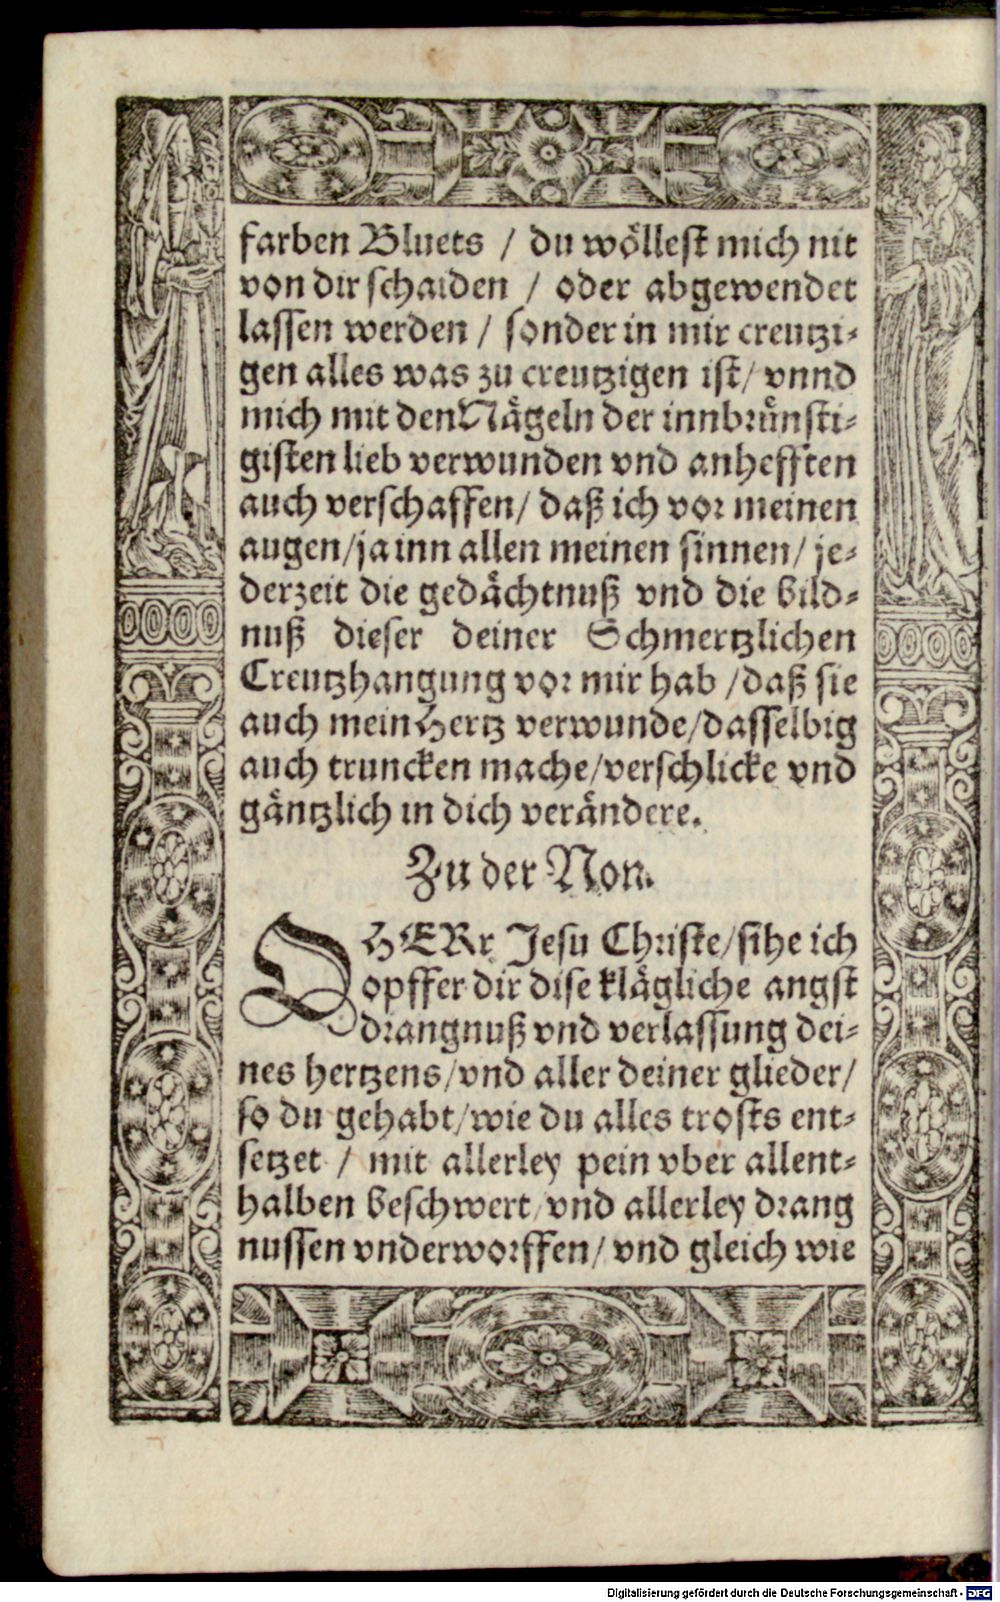 farben Bluets / du wöllest mich nit
von dir schaiden / oder abgewendet
lassen werden / sonder in mir creutzi-
gen alles was zu creutzigen ist / vnnd
mich mit den Nägeln der innbrünsti-
gisten lieb verwunden vnd anhefften
auch verschaffen / daß ich vor meinen
augen / ja inn allen meinen sinnen / je-
derzeit die gedächtnuß vnd die bild-
nuß dieser deiner Schmertzlichen
Creutzhangung vor mir hab / daß sie
auch mein Hertz verwunde / dasselbig
auch truncken mache / verschlicke vnd
gäntzlich in dich verändere.
Zu der Non.
O HERr Jesu Christe / sihe ich
opffer dir dise klägliche angst
drangnuß vnd verlassung dei-
nes hertzens / vnd aller deiner glieder /
so du gehabt / wie du alles trosts ent-
setzet / mit allerley pein vber allent-
halben beschwert / vnd allerley drang
nussen vnderworffen / vnd gleich wie
Digitalisierung gefördert durch die Deutsche Forschungsgemeinschaft - DFG